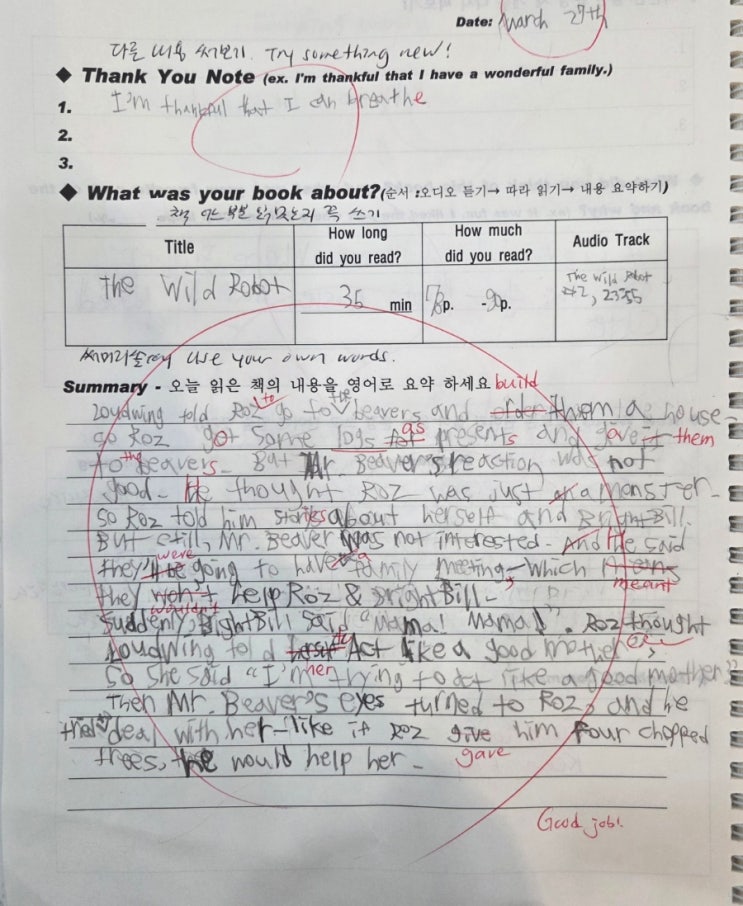 Date: March 27th
다른 내용 써보기. Try something new!
◆ Thank You Note (ex. I'm thankful that I have a wonderful family.)
1. I'm thankful that I can breathe
2.
3.
◆ What was your book about?(순서 :오디오 듣기→ 따라 읽기→ 내용 요약하기)
책 어느 부분 읽었는지 꼭 쓰기
Title How long did you read? How much did you read? Audio Track
The Wild Robot 35 min 78p. -90p. The Wild Robot
#2, 23:55
use your own words.
Summary - 오늘 읽은 책의 내용을 영어로 요약 하세요 build
Loudwing told Roz to go to the beavers and them a house-
so Roz got some logs as presents and gave it them
to the Beavers. But Mr. Beaver's reaction was not
good. He thought Roz was just a monster.
so Roz told him stories about herself and BrightBill.
But still, Mr. Beaver was not interested. And He said
they'll be were going to have a family meeting, which means meant
they won't wouldn't help Roz & BrightBill.
Suddenly, BrightBill said "Mama! Mama!". Roz thought
Loudwing told her to Act like a good mother,
So she said "I'm trying to act like a good mother"
Then Mr. Beaver's eyes turned to Roz, and he
deal with her-like if Roz give gave him Four chopped
trees, he would help her.
Good job!